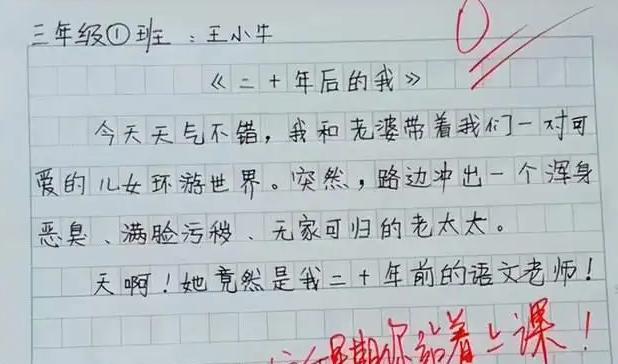 三年级①班：王小牛
0
《二十年后的我》
今天天气不错，我和老婆带着我们一对可
爱的儿女环游世界。突然，路边冲出一个浑身
恶臭、满脸污秽、无家可归的老太太。
天啊！她竟然是我二十年前的语文老师！
星期你站着上课！